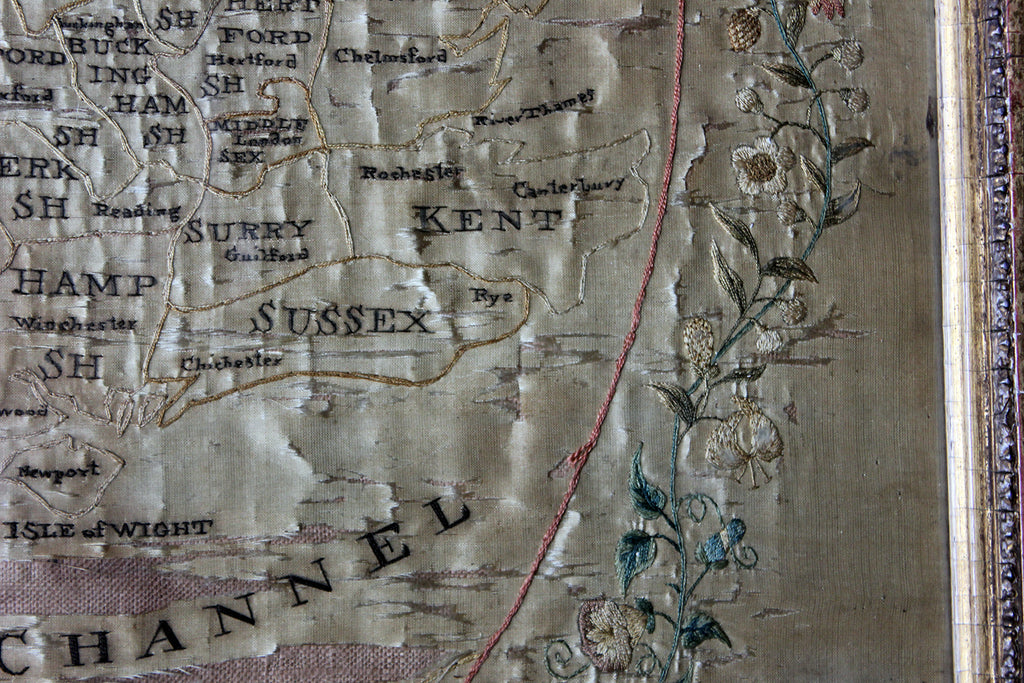 HERT
SH
Buckingham
BUCK
FORD
Chelmsford
ORD
Hertford
ING
SH
HAM
River Thames
MIDDLE
SH
SH
London
SEX
Rochester
ERK
Canterbury
SH
Reading
KENT
SURRY
Guilford
HAMP
Rye
SUSSEX
Winchester
SH
Chichester
wood
Newport
ISLE of WIGHT
CHANNEL